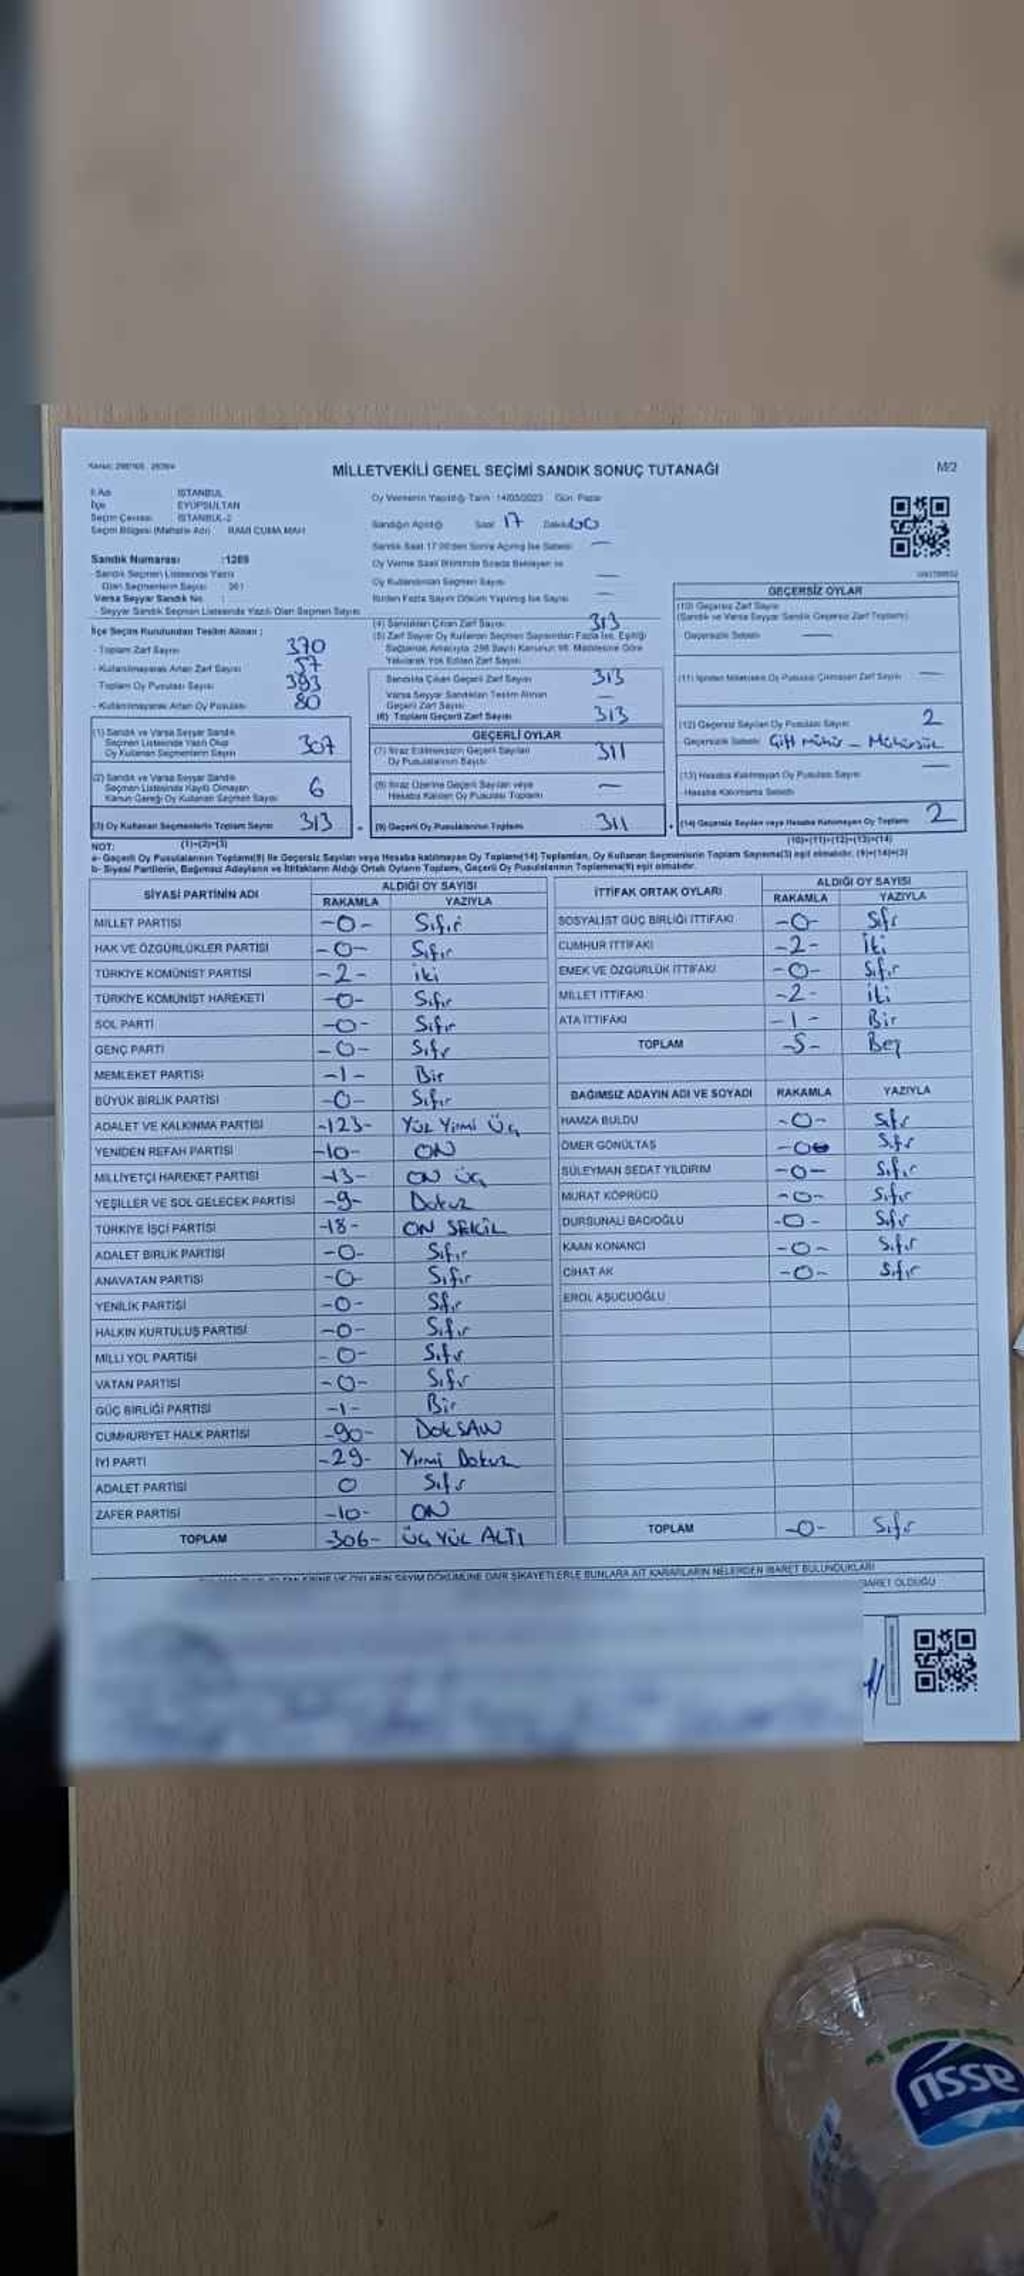 MİLLETVEKİLİ GENEL SEÇİMİ SANDIK SONUÇ TUTANAĞI
M/2
İl Adı İSTANBUL
İlçe EYÜPSULTAN
Seçim Çevresi İSTANBUL-2
Seçim Bölgesi (Mahalle Adı) RAMİ CUMA MAH
Oy Vermenin Yapıldığı Tarih 14/05/2023 Gün Pazar
Sandığın Açıldığı Saat 17 Dakika 00
Sandık Saat 17.00'den Sonra Açılmış İse Sebebi —
Oy Verme Saati Bitiminde Sırada Bekleyen ve
Oy Kullandırılan Seçmen Sayısı —
Birden Fazla Sayım Döküm Yapılmış İse Sayısı —
Sandık Numarası :1289
- Sandık Seçmen Listesinde Yazılı
Olan Seçmenlerin Sayısı 361
Varsa Seyyar Sandık No :
- Seyyar Sandık Seçmen Listesinde Yazılı Olan Seçmen Sayısı
İlçe Seçim Kurulundan Teslim Alınan :
- Toplam Zarf Sayısı 370
- Kullanılmayarak Artan Zarf Sayısı 57
Toplam Oy Pusulası Sayısı 393
- Kullanılmayarak Artan Oy Pusulası 80
(1) Sandık ve Varsa Seyyar Sandık
Seçmen Listesinde Yazılı Olup
Oy Kullanan Seçmenlerin Sayısı 307
(2) Sandık ve Varsa Seyyar Sandık
Seçmen Listesinde Kayıtlı Olmayan
Kanun Gereği Oy Kullanan Seçmen Sayısı 6
(3) Oy Kullanan Seçmenlerin Toplam Sayısı 313
(1)+(2)=(3)
(4) Sandıktan Çıkan Zarf Sayısı 313
(5) Zarf Sayısı Oy Kullanan Seçmen Sayısından Fazla İse, Eşitliği
Sağlamak Amacıyla, 298 Sayılı Kanunun 98. Maddesine Göre
Yakılarak Yok Edilen Zarf Sayısı
Sandıkta Çıkan Geçerli Zarf Sayısı 313
Varsa Seyyar Sandıktan Teslim Alınan
Geçerli Zarf Sayısı —
(6) Toplam Geçerli Zarf Sayısı 313
GEÇERLİ OYLAR
(7) İtiraz Edilmeksizin Geçerli Sayılan
Oy Pusulalarının Sayısı 311
(8) İtiraz Üzerine Geçerli Sayılan veya
Hesaba Katılan Oy Pusulası Toplamı —
(9) Geçerli Oy Pusulalarının Toplamı 311
GEÇERSİZ OYLAR
(10) Geçersiz Zarf Sayısı
(Sandık ve Varsa Seyyar Sandık Geçersiz Zarf Toplamı)
Geçersizlik Sebebi —
(11) İçinden Milletvekili Oy Pusulası Çıkmayan Zarf Sayısı —
(12) Geçersiz Sayılan Oy Pusulası Sayısı 2
Geçersizlik Sebebi Çift mühür – Mühürsüz
(13) Hesaba Katılmayan Oy Pusulası Sayısı —
Hesaba Katılmama Sebebi
(14) Geçersiz Sayılan veya Hesaba Katılmayan Oy Toplamı 2
(10)+(11)+(12)+(13)=(14)
NOT:
a- Geçerli Oy Pusulalarının Toplamı(9) ile Geçersiz Sayılan veya Hesaba katılmayan Oy Toplamı(14) Toplamları, Oy Kullanan Seçmenlerin Toplam Sayısına(3) eşit olmalıdır. (9)+(14)=(3)
b- Siyasi Partilerin, Bağımsız Adayların ve İttifakların Aldığı Ortak Oyların Toplamı, Geçerli Oy Pusulalarının Toplamına(9) eşit olmalıdır.
SİYASİ PARTİNİN ADI ALDIĞI OY SAYISI
RAKAMLA YAZIYLA
MİLLET PARTİSİ -0- Sıfır
HAK VE ÖZGÜRLÜKLER PARTİSİ -0- Sıfır
TÜRKİYE KOMÜNİST PARTİSİ -2- iki
TÜRKİYE KOMÜNİST HAREKETİ -0- Sıfır
SOL PARTİ -0- Sıfır
GENÇ PARTİ -0- Sıfır
MEMLEKET PARTİSİ -1- Bir
BÜYÜK BİRLİK PARTİSİ -0- Sıfır
ADALET VE KALKINMA PARTİSİ -123- Yüz Yirmi Üç
YENİDEN REFAH PARTİSİ -10- ON
MİLLİYETÇİ HAREKET PARTİSİ -13- ON ÜÇ
YEŞİLLER VE SOL GELECEK PARTİSİ -9- Dokuz
TÜRKİYE İŞÇİ PARTİSİ -18- ON SEKİZ
ADALET BİRLİK PARTİSİ -0- Sıfır
ANAVATAN PARTİSİ -0- Sıfır
YENİLİK PARTİSİ -0- Sıfır
HALKIN KURTULUŞ PARTİSİ -0- Sıfır
MİLLİ YOL PARTİSİ -0- Sıfır
VATAN PARTİSİ -0- Sıfır
GÜÇ BİRLİĞİ PARTİSİ -1- Bir
CUMHURİYET HALK PARTİSİ -90- DOKSAN
İYİ PARTİ -29- Yirmi Dokuz
ADALET PARTİSİ 0 Sıfır
ZAFER PARTİSİ -10- ON
TOPLAM -306- ÜÇ YÜZ ALTI
İTTİFAK ORTAK OYLARI ALDIĞI OY SAYISI
RAKAMLA YAZIYLA
SOSYALİST GÜÇ BİRLİĞİ İTTİFAKI -0- Sıfır
CUMHUR İTTİFAKI -2- İki
EMEK VE ÖZGÜRLÜK İTTİFAKI -0- Sıfır
MİLLET İTTİFAKI -2- iki
ATA İTTİFAKI -1- Bir
TOPLAM -5- Beş
BAĞIMSIZ ADAYIN ADI VE SOYADI RAKAMLA YAZIYLA
HAMZA BULDU -0- Sıfır
ÖMER GÖNÜLTAŞ -0- Sıfır
SÜLEYMAN SEDAT YILDIRIM -0- Sıfır
MURAT KÖPRÜCÜ -0- Sıfır
DURSUNALİ BACIOĞLU -0- Sıfır
KAAN KONANCI -0- Sıfır
CİHAT AK -0- Sıfır
EROL AŞUCUOĞLU
TOPLAM -0- Sıfır
SAYIM DÖKÜMÜNE DAİR ŞİKAYETLERLE BUNLARA AİT KARARLARIN NELERDEN İBARET BULUNDUKLARI
İBARET OLDUĞU
assu